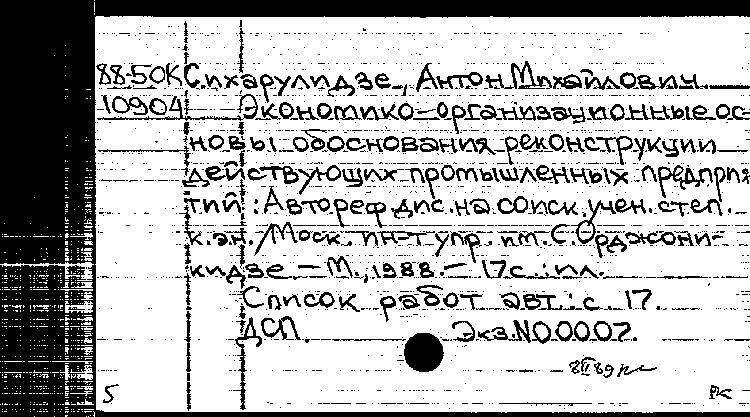 88-50К Сихарулидзе, Антон Михайлович
10904 Экономико-организационные ос
новы обоснования реконструкции
действующих промышленных предприя
тий : Автореф.дис.на соиск.учен.степ.
к.э.н./Моск. ин-т упр. им.С.Орджони-
кидзе. - М., 1988. - 17с. : ил.
Список работ авт.: с. 17.
ДСП. Экз.N00007.
5